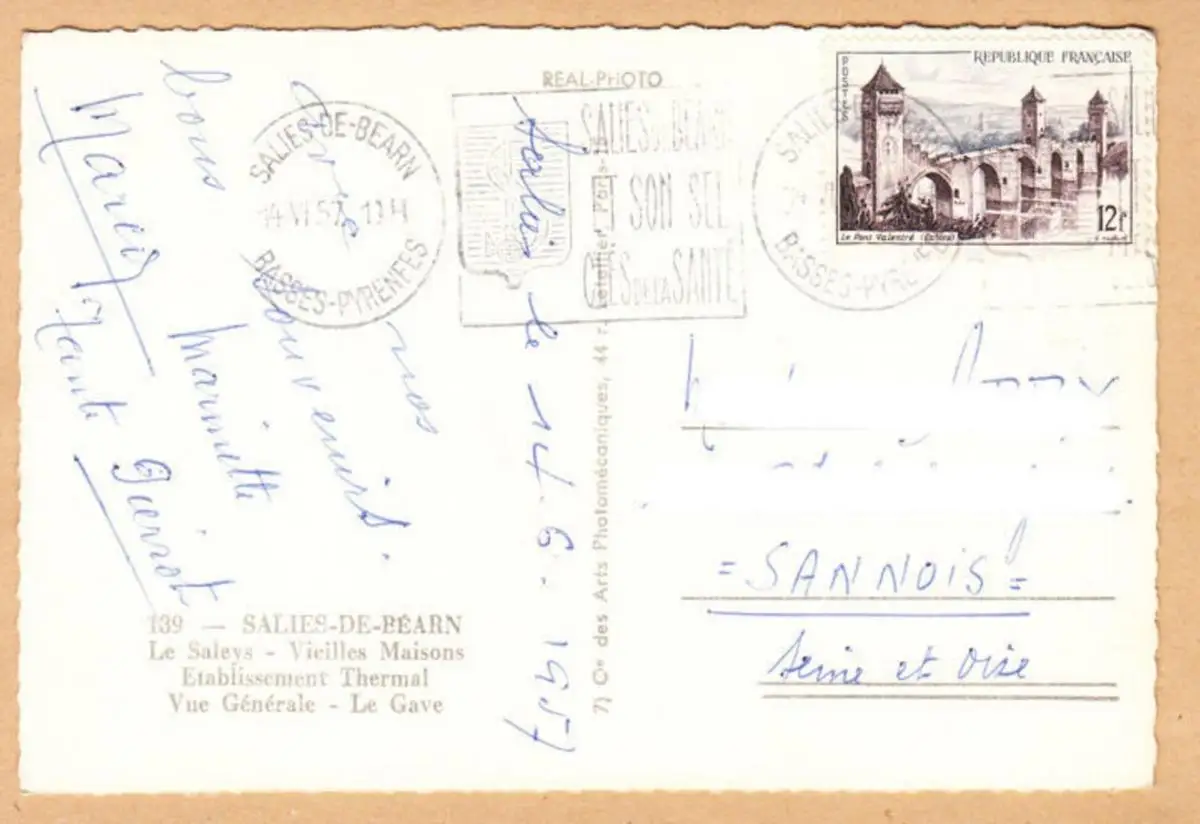 REAL-PHOTO
REPUBLIQUE FRANÇAISE
POSTES
12f
Le Pont Valentré (Cahors)
SALIES-DE-BEARN
14 VI 57
BASSES-PYRENEES
SALIES DU BEARN
ET SON SEL
CLES DE LA SANTÉ
SALIES
BASSES-PYRE
Salies le 14.6.1957
Avec nos
bons souvenirs.
Marinette
Tante Pierrot
7) Cie des Arts Photomécaniques, 44 r. Letellier Paris
= SANNOIS =
Seine et Oise
139 — SALIES-DE-BÉARN
Le Saleys - Vieilles Maisons
Etablissement Thermal
Vue Générale - Le Gave